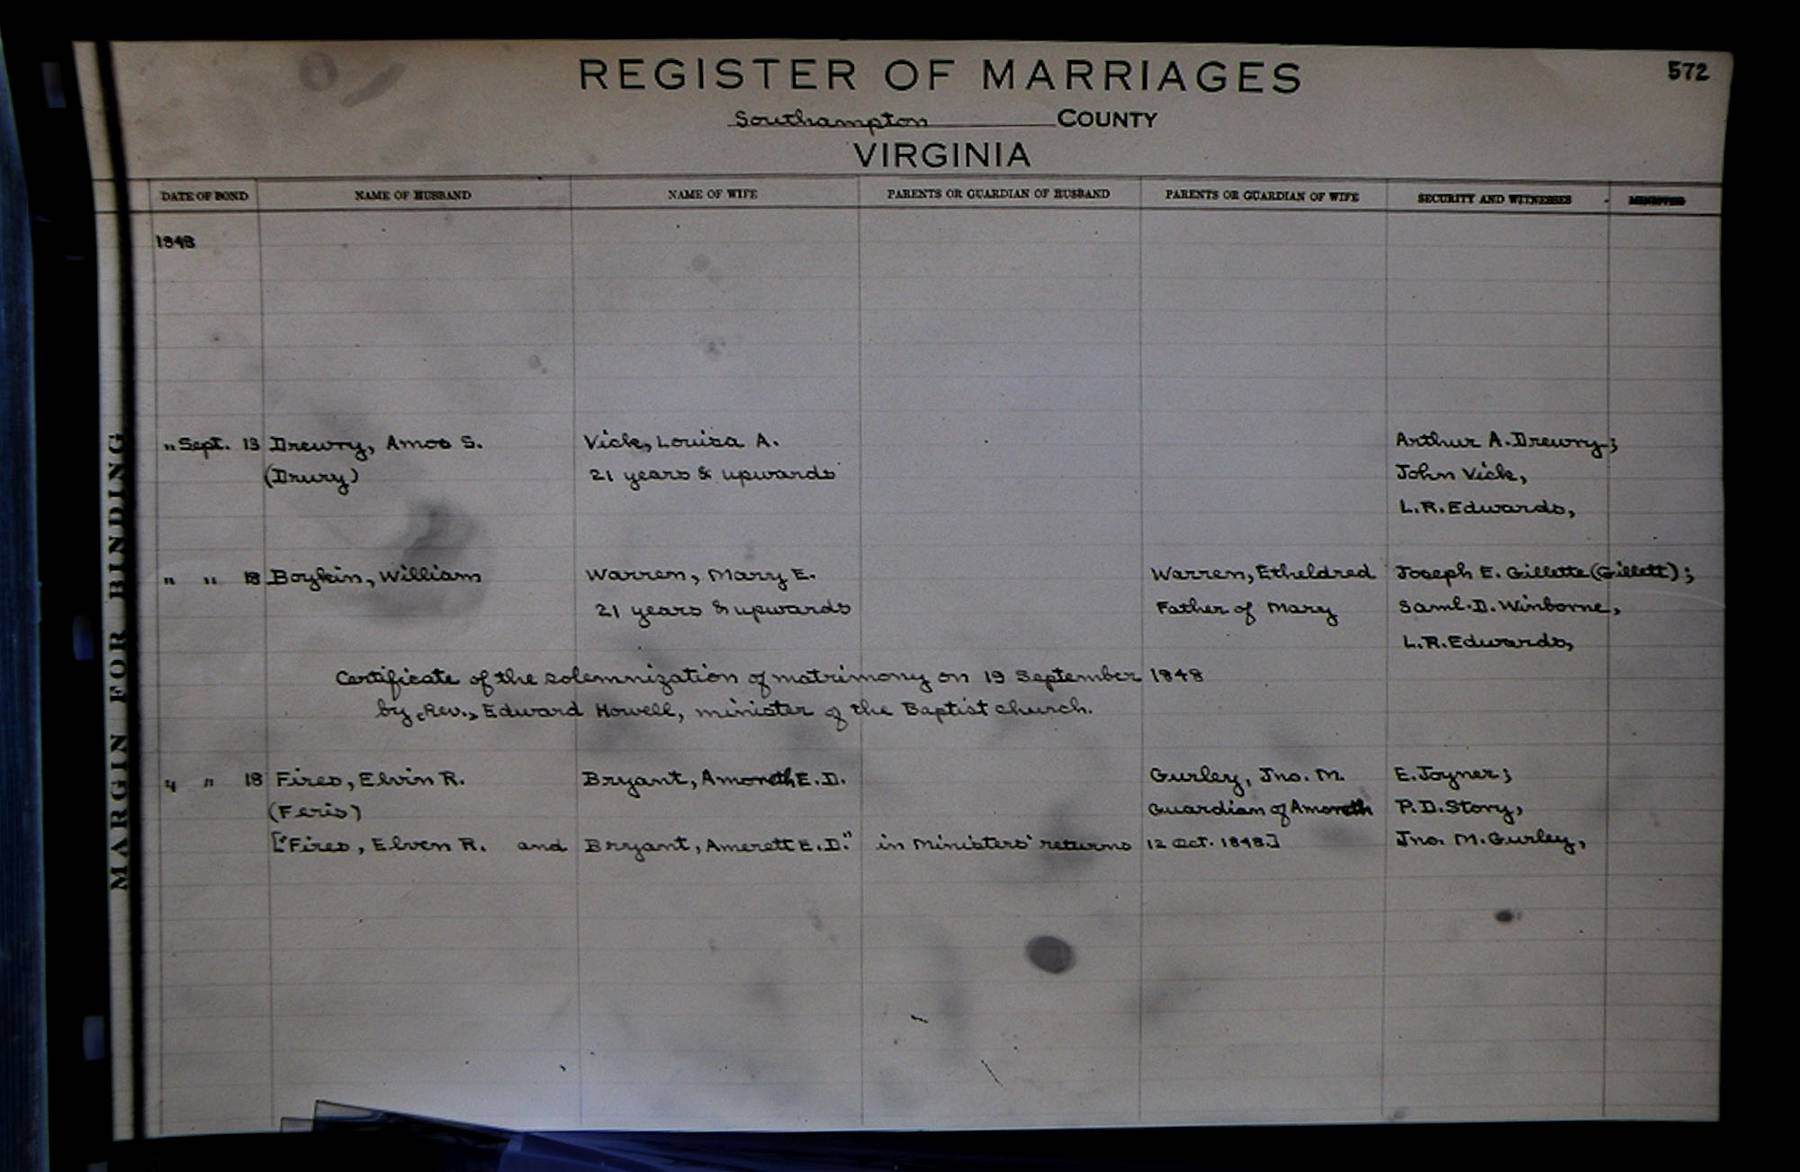 REGISTER OF MARRIAGES 572
Southampton COUNTY
VIRGINIA
DATE OF BOND NAME OF HUSBAND NAME OF WIFE PARENTS OR GUARDIAN OF HUSBAND PARENTS OR GUARDIAN OF WIFE SECURITY AND WITNESSES
1848
MARGIN FOR BINDING
" Sept. 13 Drewry, Amos S. Vick, Louisa A. Arthur A. Drewry;
(Drury) 21 years & upwards John Vick,
L.R. Edwards,
" " 18 Boykin, William Warren, Mary E. Warren, Etheldred Joseph E. Gillette (Gillett);
21 years & upwards Father of Mary Saml. D. Winborne,
L.R. Edwards,
Certificate of the solemnization of matrimony on 19 September 1848
by <Rev.> Edward Howell, minister of the Baptist church.
" " 18 Fires, Elvin R. Bryant, Amoreth E.D. Gurley, Jno. M. E. Joyner;
(Feris) Guardian of Amoreth P.D. Story,
["Fires, Elven R. and Bryant, Amerett E.D." in Ministers' returns 12 Oct. 1848.] Jno. M. Gurley,